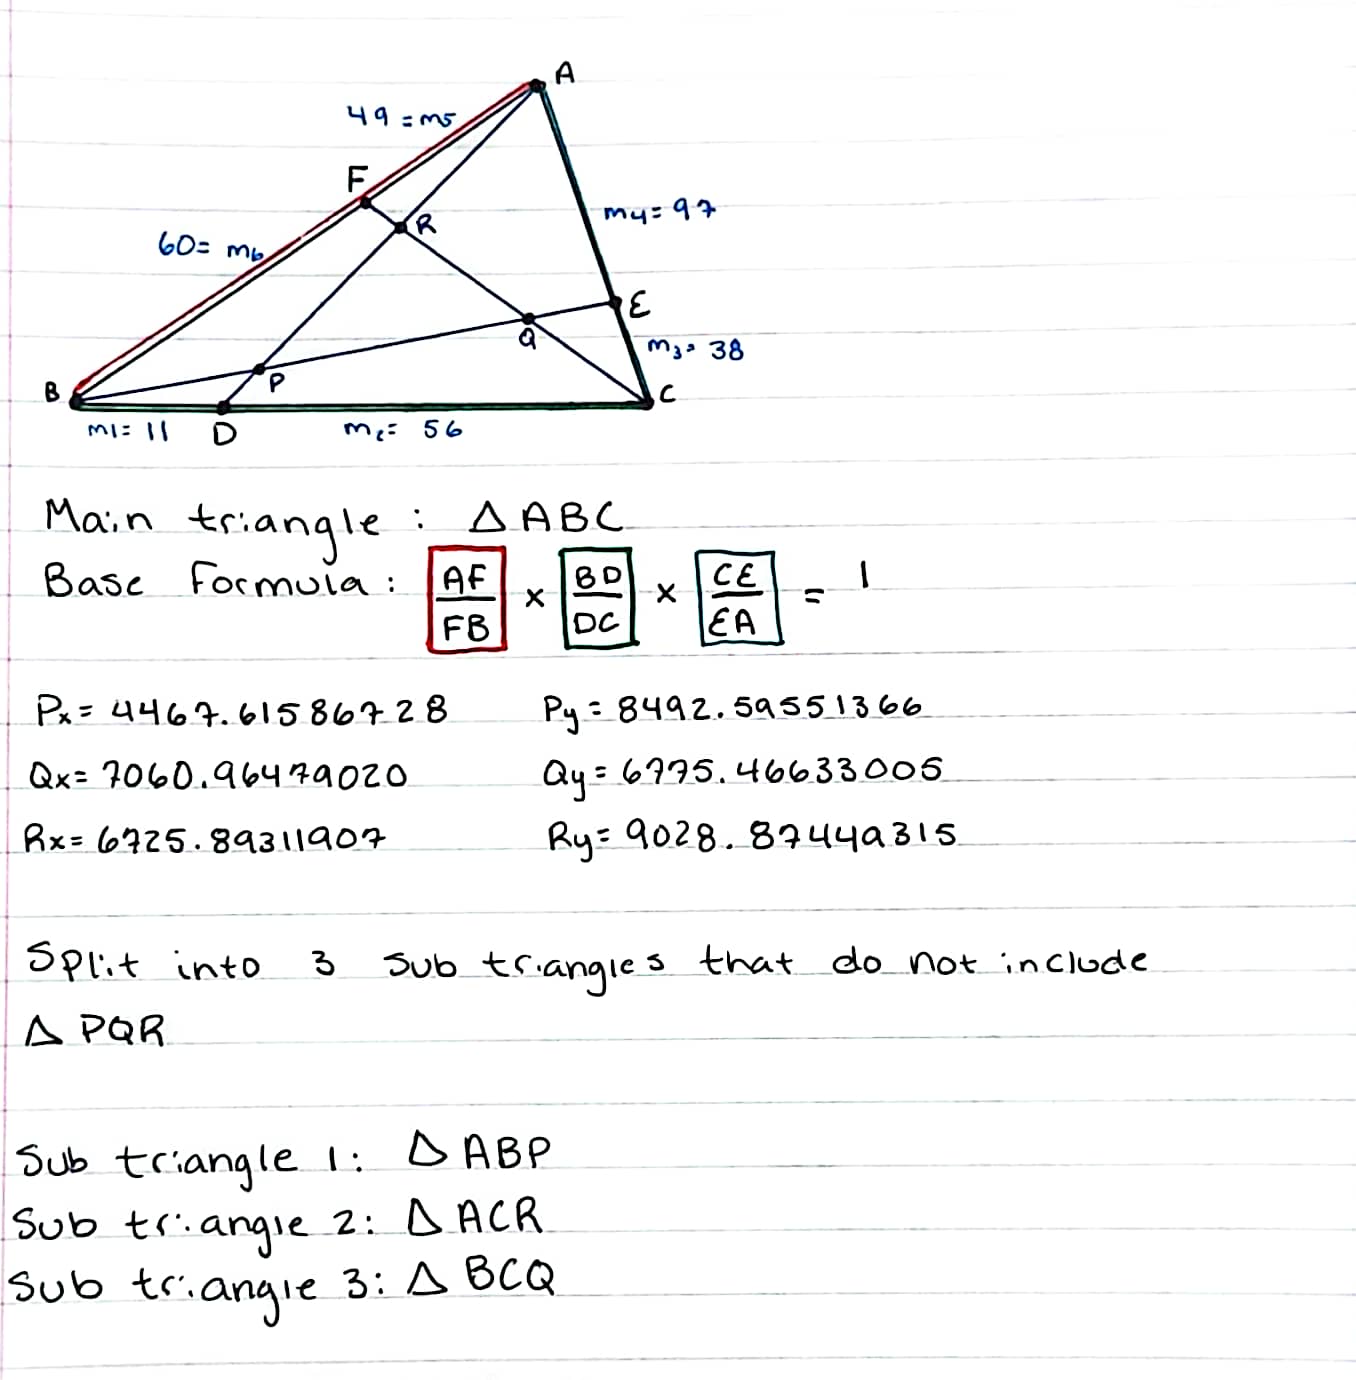 A
49 = m5
F
R
m4 = 97
60 = m6
E
Q
m3 = 38
P
B
C
m1 = 11
D
m2 = 56
Main triangle : △ ABC
Base Formula : AF/FB × BD/DC × CE/EA = 1
Px = 4467.61586728 Py = 8492.59551366
Qx = 7060.96479020 Qy = 6775.46633005
Rx = 6725.89311907 Ry = 9028.87449315
Split into 3 sub triangles that do not include
△ PQR
Sub triangle 1: △ ABP
Sub triangle 2: △ ACR
Sub triangle 3: △ BCQ